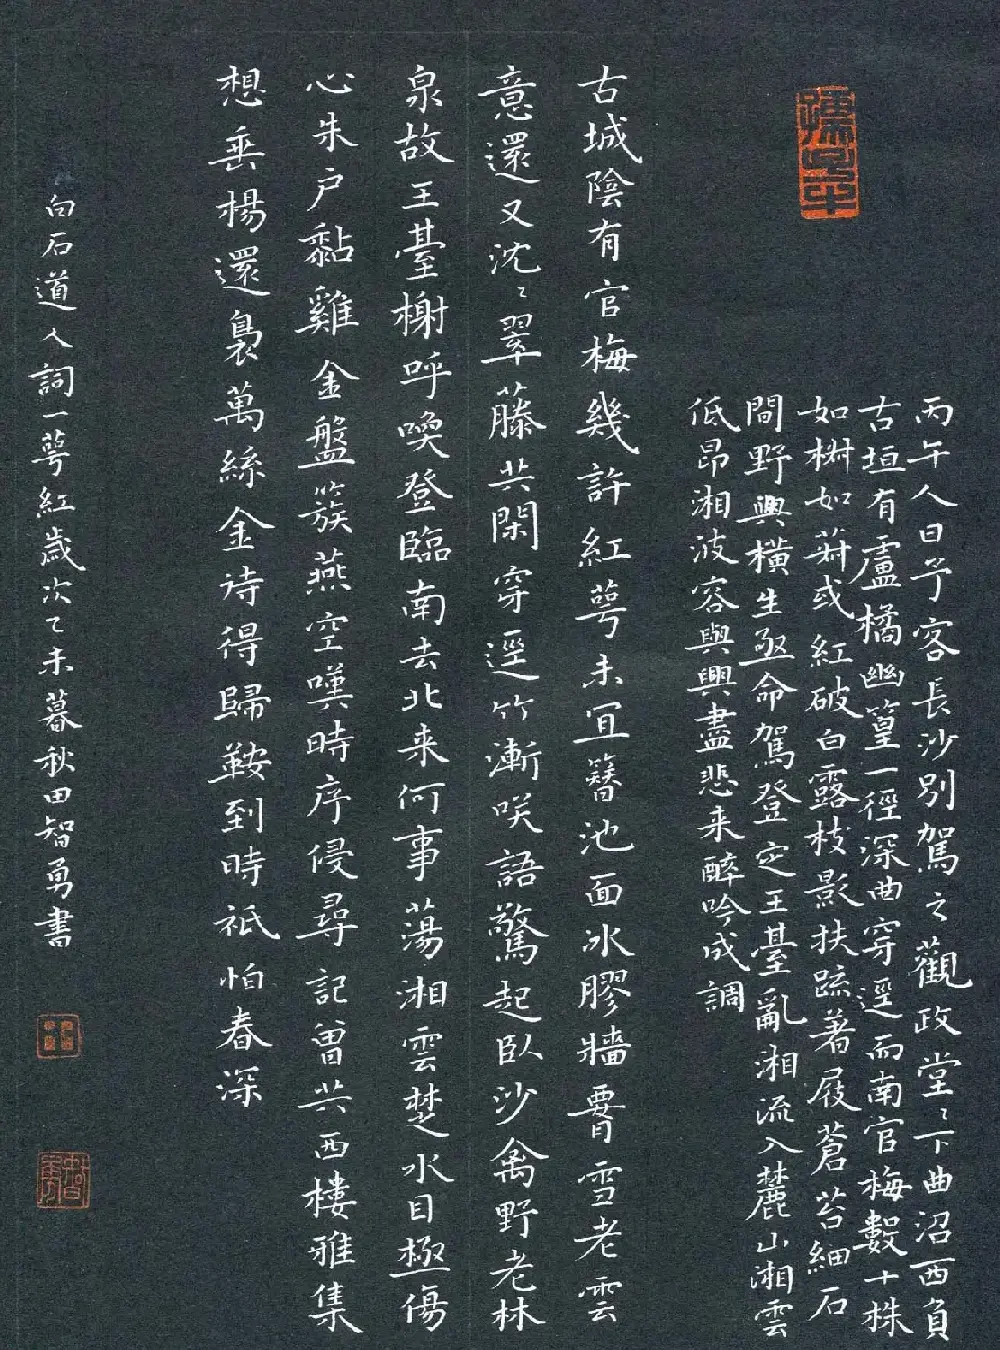 丙午人日予客長沙別駕之觀政堂〻下曲沼西負
古垣有盧橘幽篁一徑深曲穿逕而南官梅數十株
如椒如菽或紅破白露枝影扶疏著屐蒼苔細石
間野興橫生亟命駕登定王臺亂湘流入麓山湘雲
低昂湘波容與興盡悲来醉吟成調
古城陰有官梅幾許紅萼未宜簪池面冰膠牆䁞雪老雲
意還又沈〻翠藤共閑穿逕竹漸咲語驚起臥沙禽野老林
泉故王臺榭呼喚登臨南去北来何事蕩湘雲楚水目極傷
心朱戶黏雞金盤簇燕空嘆時序侵尋記曾共西樓雅集
想垂楊還裊萬絲金待得歸鞍到時衹怕春深
白石道人詞一萼紅歲次乙未暮秋田智勇書